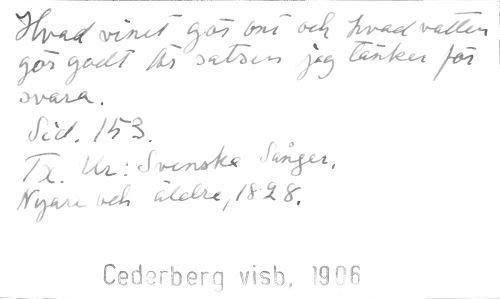 Hvad vinet gör ont och hvad vatten
gör godt är satsen jag tänker för
svara.
Sid. 153.
Tx. Ur: Svenska Sånger,
Nyare och äldre, 1828.
Cederberg visb, 1906